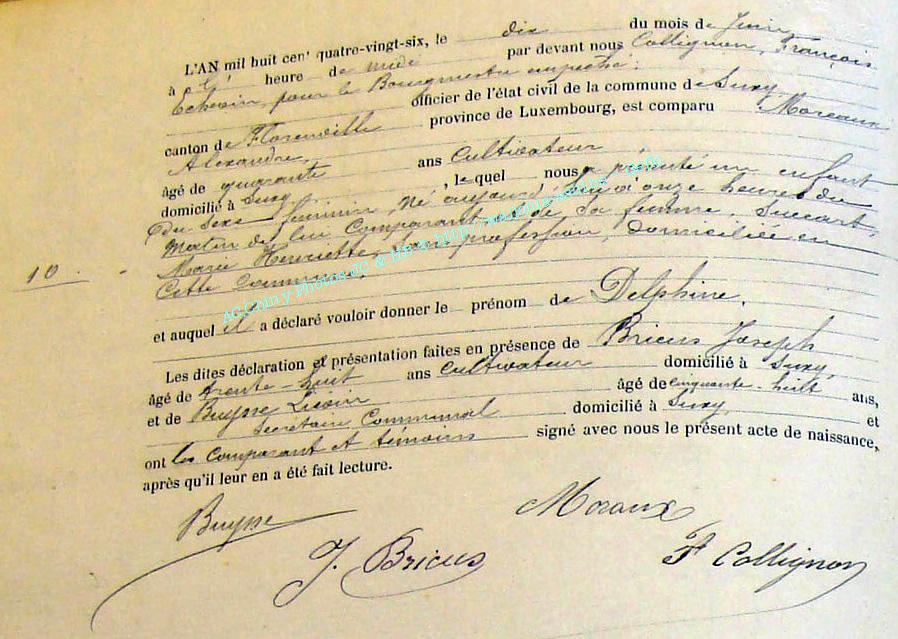 L'AN mil huit cent quatre-vingt-six, le dix du mois de Juin,
à heure de midi par devant nous Collignon, François
Echevin, pour le Bourgmestre empêché,
officier de l'état civil de la commune de Suxy
canton de Florenville province de Luxembourg, est comparu Moreaux
Alexandre,
âgé de quarante ans Cultivateur
domicilié à Suxy , lequel nous a présenté un enfant
du sexe feminin, né aujourd'hui à onze heures du
matin de lui Comparant et de Sa femme, Succart,
Marie Henriette, sans profession, domiciliée en
Cette Commune
10
et auquel il a déclaré vouloir donner le prénom de Delphine.
Les dites déclaration et présentation faites en présence de Bricus Joseph
âgé de trente-huit ans Cultivateur domicilié à Suxy,
et de Buysse Livin âgé de cinquante-huit ans,
Secrétaire Communal domicilié à Suxy, et
ont les comparant et témoins signé avec nous le présent acte de naissance,
après qu'il leur en a été fait lecture.
Buysse
Moraux
J. Bricus
F Collignon
AC Chiny Photos JC &